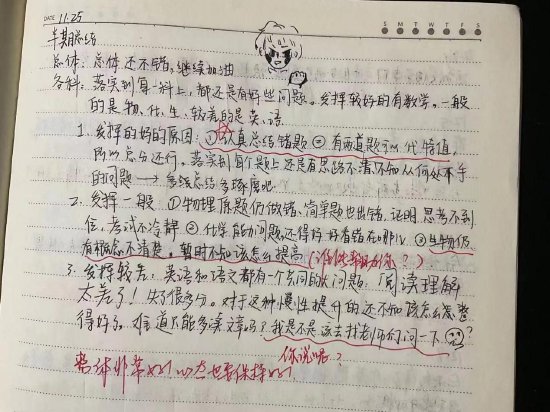 DATE 11.25
S M T W T F S
半期总结
总体：总体还不错，继续加油
各科：落实到每一科上，都还是有好些问题。发挥较好的有数学。一般
的是物、代、生，较差的是英、语
1、发挥的好的原因：①认真总结错题 ②有两道题可以代特值，
所以总分还行。落实到每个题上还是有思路不清不知从何处下手
的问题 → 多练总结多琢磨吧
2、发挥一般 ①物理原题仍做错，简单题也出错，证明思考不到
位，考试不冷静 ②化学能力问题，还得好好看错在哪儿 ③生物仍
有概念不清楚。暂时不知该怎么提高
3、发挥较差：英语和语文都有一个共同的大问题：阅读理解
太差了！失了很多分。对于这种慢性提升的还不知该怎么整
得好了，难道只能多读文章吗？我是不是该去找老师们问一下？
你说呢？
整体非常好 心态也要保持好